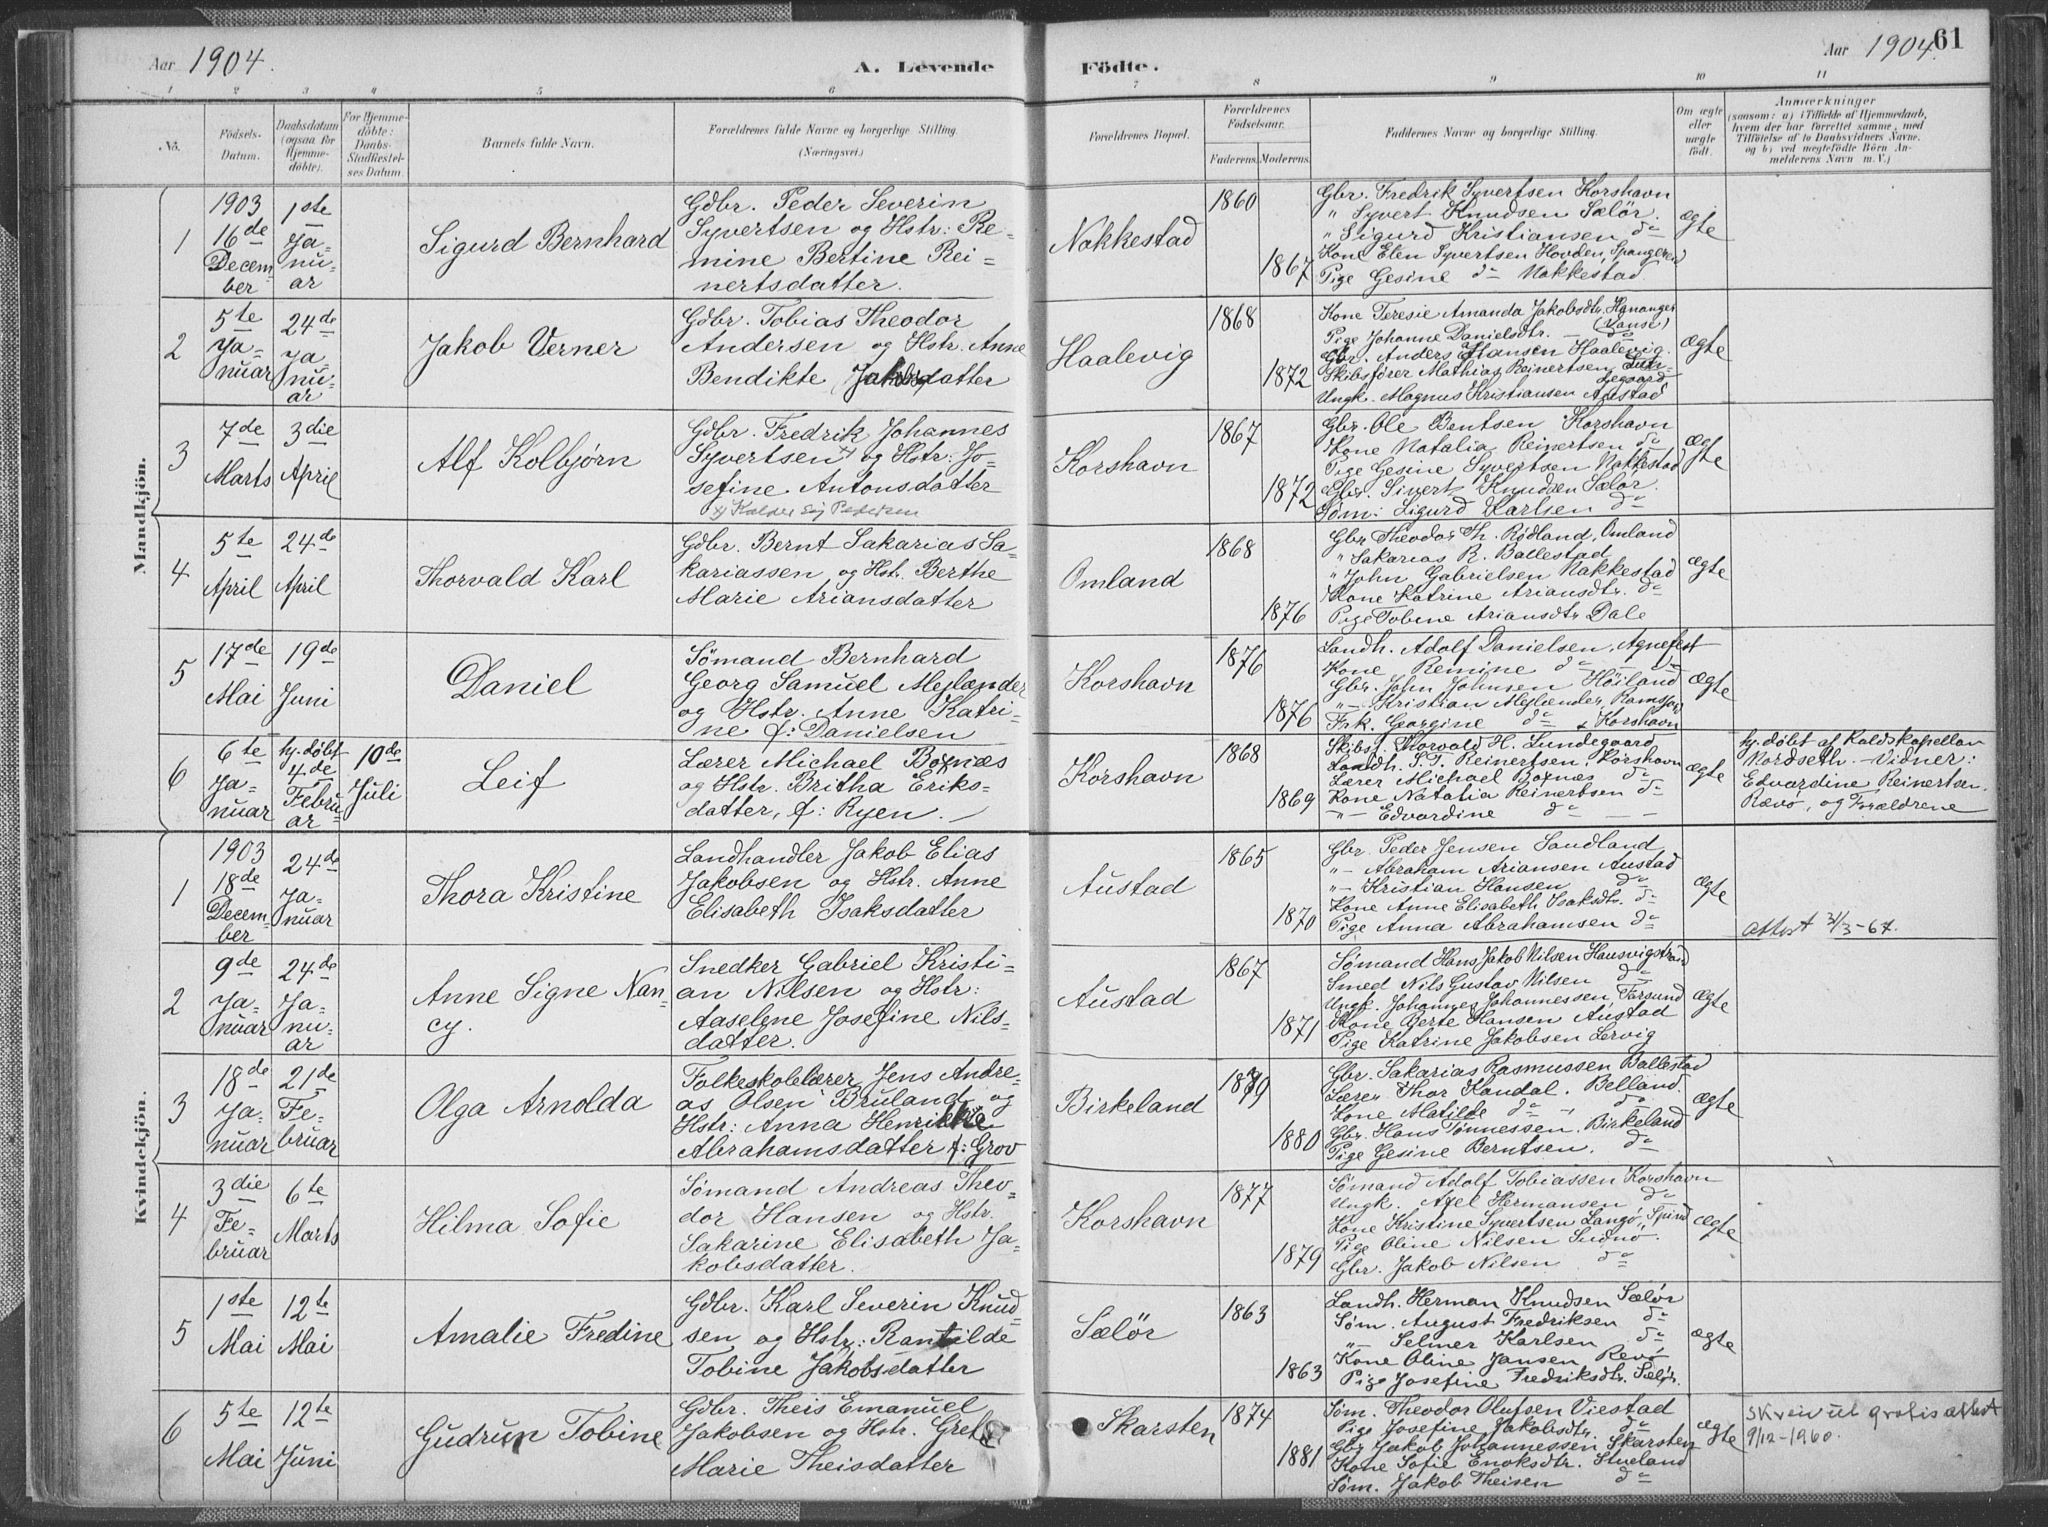 Aar 1904.
A. Levende Födte.
Aar 1904.
61
1 2 3 4 5 6 7 8 9 10 11
No.
Födsels-Datum.
Daabsdatum (ogsaa for Hjemmedöbte).
For Hjemmedöbte: Daabs-Stadfæstelses Datum.
Barnets fulde Navn.
Forældrenes fulde Navne og borgerlige Stilling.
(Næringsvei.)
Forældrenes Bopæl.
Forældrenes Födselsaar.
Faderens. Moderens.
Faddernes Navne og borgerlige Stilling.
Om ægte eller uægte födt.
Anmærkninger
(saasom: a) i Tilfælde af Hjemmedaab, hvem der har forrettet samme, med Tilföielse af to Daabsvidners Navne, og b) ved uægtefödte Börn Anmelderens Navn m. V.)
Mandkjön.
1
1903 16de December
1ste Januar
Sigurd Bernhard
Gdbr. Peder Severin
Syvertsen og Hstr: Re-
mine Bertine Rei-
nertsdatter.
Nakkestad
1860
1867
Gbr. Fredrik Syvertsen Korshavn
" Syvert Knudsen Sælör.
" Sigurd Kristiansen do
Kone Elen Syvertsen Hovden, Spangereid
Pige Gesine do Nakkestad
ægte
2
5te Januar
24de Januar
Jakob Verner
Gdbr. Tobias Theodor
Andersen og Hstr. Anne
Bendikte Jakobsdatter
Haalevig
1868
1872
Kone Teresie Amanda Jakobsdtr. Hananger
(Vanse)
Pige Johanne Danielsdtr. — do
Gbr. Anders Hansen Haalevig.
Skibsfører Mathias Reinertsen Lundegaard
Ungk. Magnus Kristiansen Austad
ægte
3
7de Marts
3die April
Alf Kolbjørn
Gdbr. Fredrik Johannes
Syvertsen x) og Hstr: Jo-
sefine Antonsdatter
x) Kalder sig Pedersen
Korshavn
1867
1872
Gbr. Ole Bentsen Korshavn
Kone Natalia Reinertsen do
Pige Gesine Syvertsen Nakkestad
Gbr. Sivert Knudsen Sælör.
Søm: Sigurd Karlsen do
ægte
4
5te April
24de April
Thorvald Karl
Gdbr. Bernt Sakarias Sa-
kariassen og Hstr. Berthe
Marie Ariansdatter
Omland
1868
1876
Gbr Theodor Th. Rødland, Omland
" Sakarias R. Ballestad
" John Gabrielsen Nakkestad
Kone Katrine Ariansdtr. do
Pige Tobine Ariansdtr Dale
ægte
5
17de Mai
19de Juni
Daniel
Sömand Bernhard
Georg Samuel Mejlænder
og Hstr. Anne Katri-
ne f: Danielsen
Korshavn
1876
1876
Landh. Adolf Danielsen, Agnefest
Kone Remine do do
Gbr. John Johnsen Höiland
"— Kristian Mejlænder,
Frk. Georgine do Korshavn
ægte
6
6te Januar
hj. döbt 4de Februar
10de Juli
Leif
Lærer Michael Boxnæs
og Hstr. Britha Eriks-
datter, f: Ryen.
Korshavn
1868
1869
Skibsf. Thorvald H. Lundegaard
Landh. S.T. Reinertsen Korshavn
Lærer Michael Boxnæs do
Kone Natalia Reinertsen do
—"— Edvardine do — —
ægte
hj. døbt af Kaldskapellan
Nordseth. Vidner:
Edvardine Reinertsen.
Rævø, og Forældrene
Kvindekjön.
1
1903 18de December
24de Januar
Thora Kristine
Landhandler Jakob Elias
Jakobsen og Hstr. Anne
Elisabeth Isaksdatter
Austad
1865
1870
Gbr. Peder Jensen Sandland
"— Abraham Ariansen Austad
"— Kristian Hansen do
Kone Anne Elisabeth Isaksdtr. do
Pige Anna Abrahamsen do
ægte
attest 31/3-67.
2
9de Januar
24de Januar
Anne Signe Nan-
cy.
Snedker Gabriel Kristi-
an Nilsen og Hstr:
Aaselene Josefine Nils-
datter.
Austad
1867
1871
Sømand Hans Jakob Nilsen Hausvigstrand
Smed Nils Gustav Nilsen do
Ungk. Johannes Johannessen, Farsund
Kone Berte Hansen Austad
Pige Katrine Jakobsen Lervig
ægte
3
18de Januar
21de Februar
Olga Arnolda
Folkeskolelærer Jens Andre-
as Olsen Bruland og
Hstr: Anna Henrikke
Abrahamsdatter f: Grov
Birkeland
1879
1880
Gbr. Sakarias Rasmussen Ballestad
Lærer Thor Kandal. Belland.
Kone Matilde do do
Gbr. Hans Tønnessen. Birkeland
Pige Gesine Berntsen. do
ægte
4
3die Februar
6te Marts
Hilma Sofie
Sømand Andreas Theo-
dor Hansen og Hstr.
Sakarine Elisabeth Ja-
kobsdatter.
Korshavn
1877
1879
Sømand Adolf Tobiassen Korshavn
Ungk. Axel Hermansen do
Kone Kristine Syvertsen Langö, Spind
Pige Oline Nilsen
Gbr. Jakob Nilsen do
ægte
5
1ste Mai
12te Mai
Amalie Fredine
Gdbr. Karl Severin Knud-
sen og Hstr: Rantilde
Tobine Jakobsdatter
Sælör
1863
1863
Landh. Herman Knudsen Sælør
Søm. August Fredriksen do
"— Selmer Karlsen do
Kone Oline Jansen Revø
Pige Josefine Fredriksdtr. Sælør.
ægte
6
5te Mai
12te Juni
Gudrun Tobine
Gdbr. Theis Emanuel
Jakobsen og Hstr. Grete
Marie Theisdatter
Skarsten
1874
1881
Søm. Theodor Olufsen Viestad
Pige Josefine Jakobsdtr do
Gbr Jakob Johannessen Skarsten
Kone Sofie Enoksdtr. Stueland
Søm. Jakob Theisen do
ægte
Skrev ut gratis attest
9/12-1960.